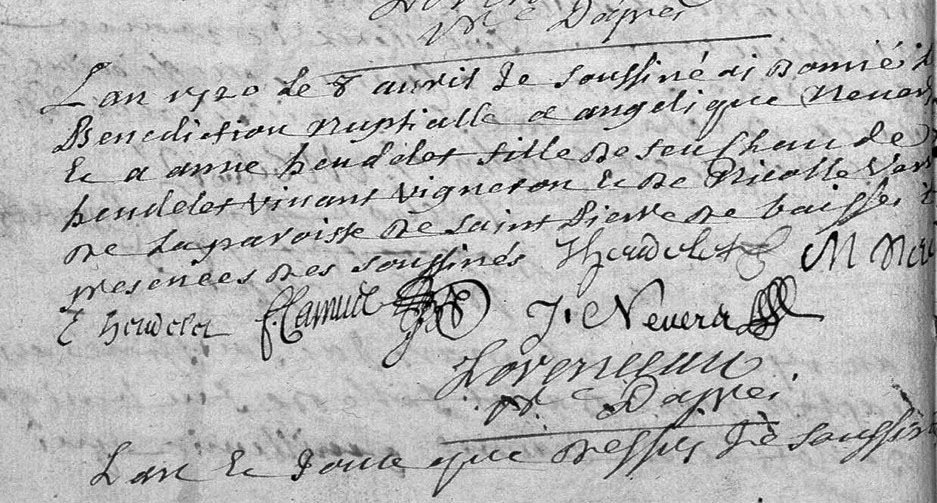 vic Dapvei
Lan 1720 Le 8 avril Je soussiné ai Donné l
Benediction Nuptialle a angelique Never
Et a anne heudelet fille de feu Claude
heudelet vivant Vigneron Et de Nicolle Ver
de La paroisse de saint Pierre de baisse
presences des soussinés Theudelet M Never
E heudelet F. Camuel J. Neverd
Lorenceau
vic
Lan Et Jour que Dessus Je soussin